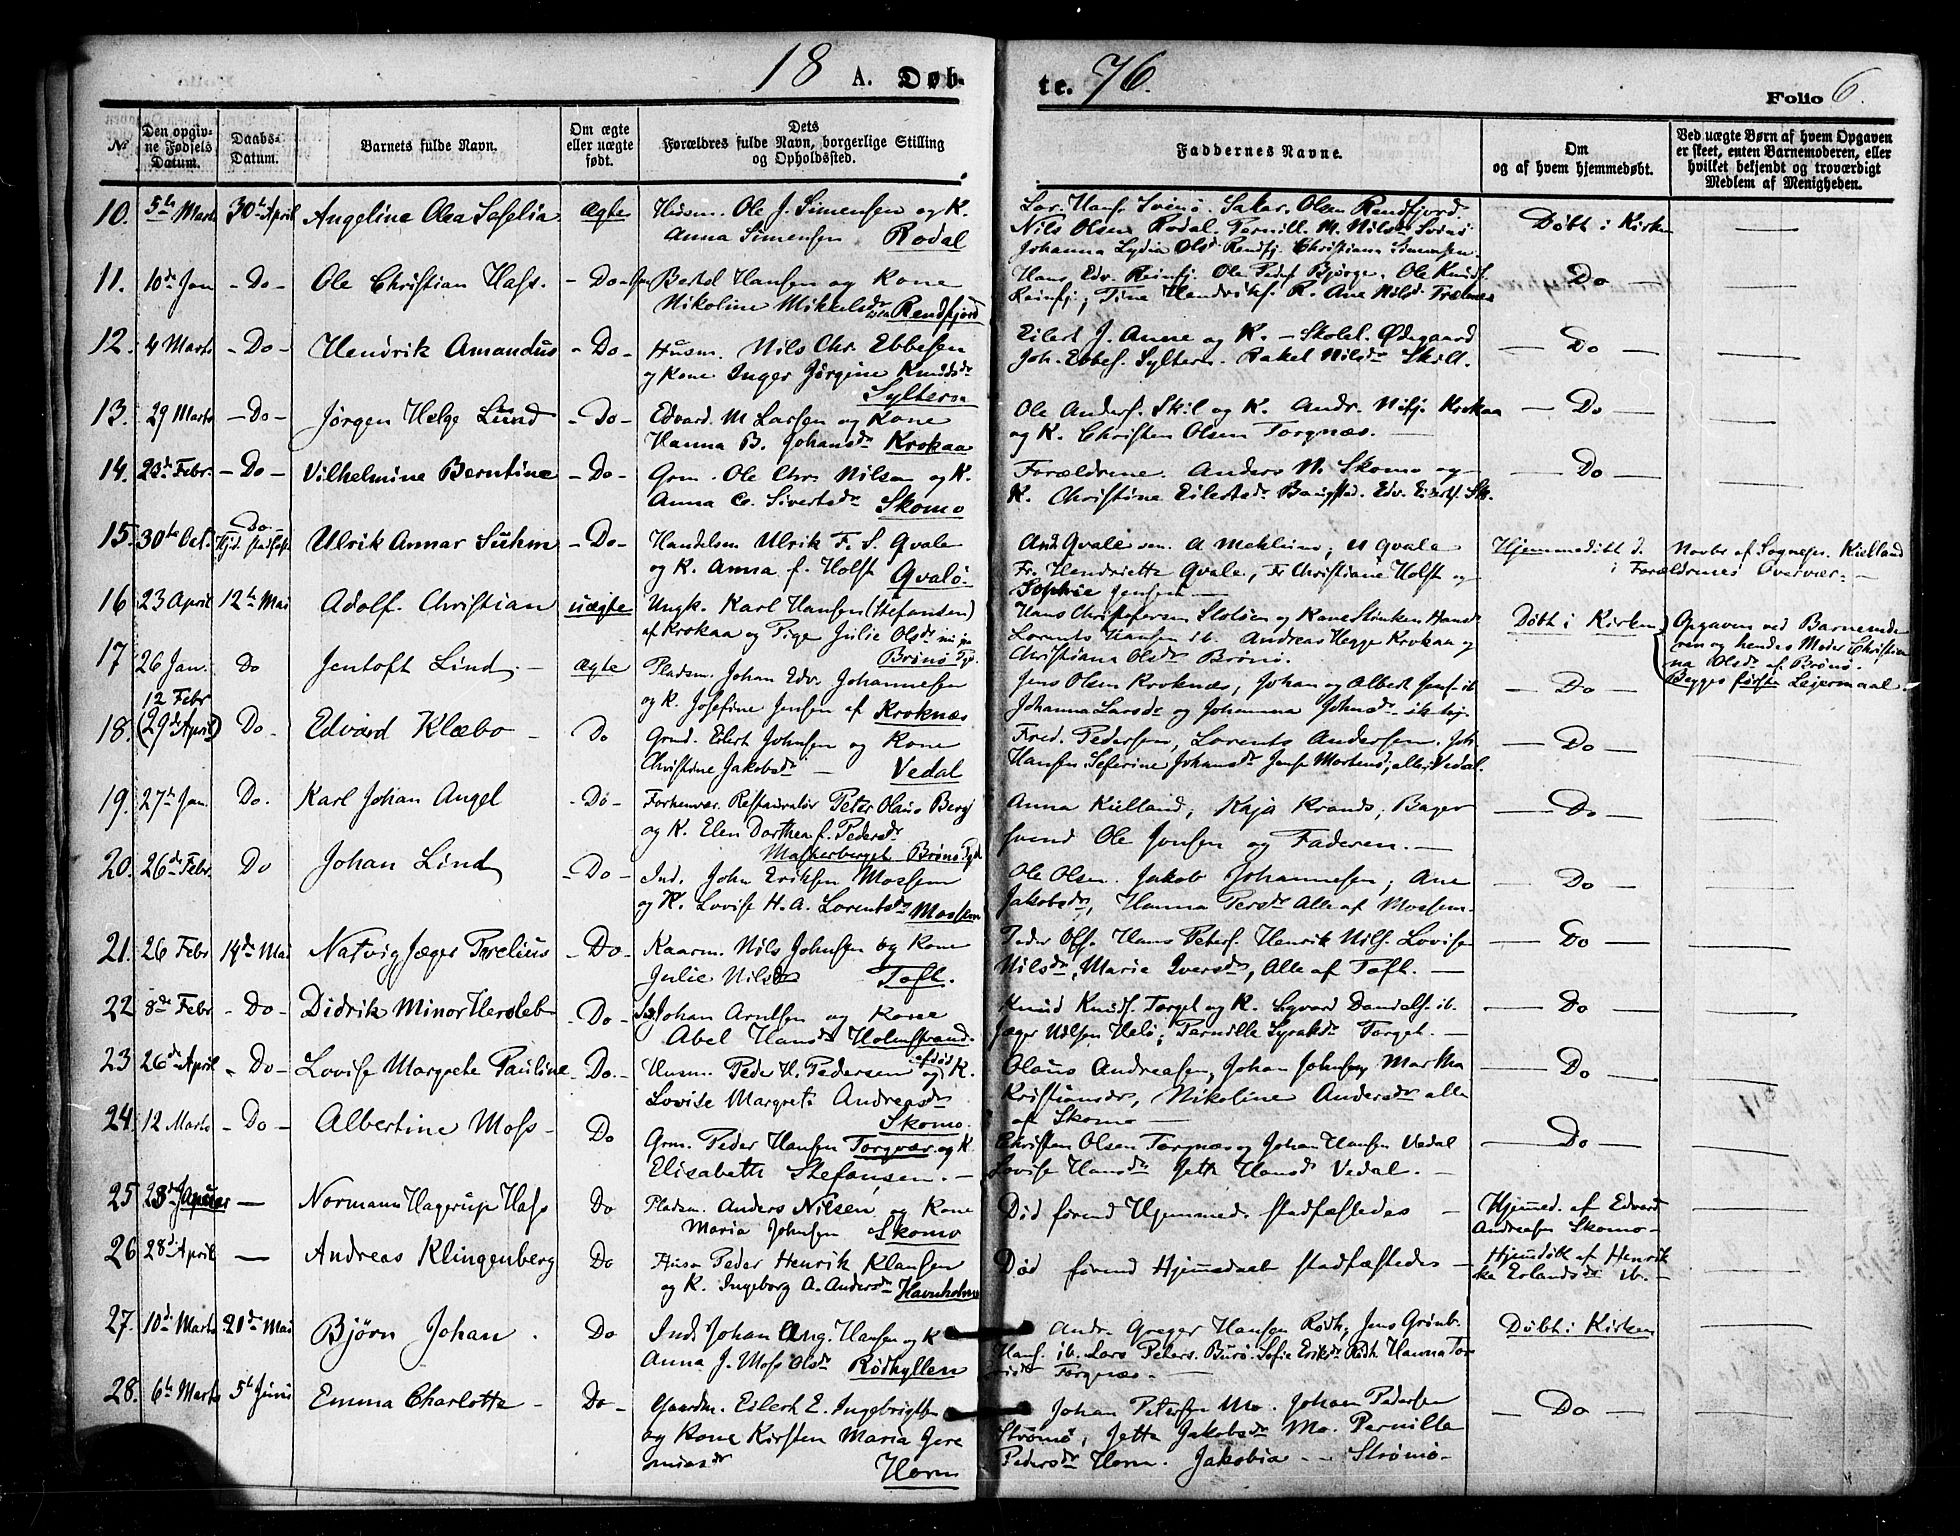 18 A. Døb-
te. 76.
Folio 6.
No
Den opgiv-
ne Fødsels
Datum.
Daabs-
Datum.
Barnets fulde Navn.
Om ægte
eller uægte
født.
Dets
Forældres fulde Navn, borgerlige Stilling
og Opholdssted.
Faddernes Navne.
Om
og af hvem hjemmedøbt.
Ved uægte Børn af hvem Opgaven
er skeet, enten Barnemoderen, eller
hvilket bekjendt og troværdigt
Medlem af Menigheden.
10. 5te Marts 30te April Angelina Olea Sofelia ægte
Husm. Ole J. Simensen og K.
Anna Simensen Rodal
Nils Olsen Rodal. Pernill. M. Nilsdr
Døbt i Kirken
11. 10de Jan - Do - Ole Christian Hass. - Do -
Bertel Hansen og Kone
Nikoline Mikkelsdr Rendfjord
Do
12. 4 Marts - Do - Hendrik Amandus - Do -
Husm. Nils Chr. Ebbesen
og Kone Inger Jørgine Knudsdr
Sylteren
Eilert J. Aune og K. - Skolel. Ødegaard
Joh. Ebbes. Syltern. Rakel Nilsdr Skill.
Do
13. 29 Marts - Do - Jørgen Helge Lund - Do -
Edvard M Larsen og Kone
Hanna B. Johansdr Krokaa
Ole Anders. Skil og K. Andr. Krokaa
og K. Christen Olsen Torgnæs. -
Do
14. 23de Febr. - Do - Vilhelmine Berntine - Do -
Grm. Ole Chr. Nilsen og K.
Anna C. Sivertsdr Skomo
Forældrene. Anders N. Skomo og
K. Christine Eilertsdr Baugstad. Edv. Eilerts. Sk.
Do
15. 30te Oct. Do - Hjd. stadfæst Ulrik Annar Suhm - Do -
Handelsm. Ulrik F. S. Qvale
og K. Anna f. Holst Qvalø
And Qvale sen. A Mehlum; U Qvale
Fr. Henriette Qvale, Fr Christiane Holst og
Sophie Jensen -
Hjemmedøbt d. Novbr af Sognepr. Kielland
i Forældrenes Overvær. -
16 23 April 12te Mai Adolf. Christian uægte
Ungk. Karl Hansen (Stefansen)
af Krokaa og Pige Julie Olsdr
Brønø
Lorents Hansen ib. Andreas Hegge Krokaa og
Christiana Olsdr Brønø.
Døbt i Kirken
Opgaven ved Barnemode
ren og hendes Moder Christia
na Olsdr af Brønø.
Begges første Leiermaal.
17 26 Jan. Do Jentoft Lind. - ægte
Pladsm. Johan Edv. Johannesen
og K. Josefine Jensen af Kroknæs
Jens Olsen Kroknæs, Johan og Albert Jens. ib
Johanna Larsdr og Johanna Johnsdr
Do
18. 12 Febr
(29de April) Do. Edvard Klæbo - Do
Grmd. Eilert Johnsen og Kone
Christine Jakobsdr - Vedal
Fred. Pedersen, Lorents Andersen. Joh.
Hansen Seferine Johansdr alle Vedal.
Do
19. 27te Jan. Do. Karl Johan Angel - Do -
Forhenvær. Restauratør Peter Olaus Berg
og K. Elen Dorthea f. Pedersdr
Brønø
Anna Kielland, Kaja Krands; Bager
svend Ole Jonsen og Faderen. -
Do
20. 26de Febr. Do Johan Lind - Do -
Ind. John Eriksen Mossem
og K. Lovise H. A. Lorentsdr Mossem
Ole Olsen. Jakob Johannesen; Ane
Jakobsdr, Hanna Persdr Alle af Mossem.
Do
21. 26 Febr 14de Mai Natvig Jæger Parelius - Do -
Kaarm. Nils Johnsen og Kone
Julie Nilsdr Toft.
Peder Ols. Hans Peters. Henrik Nils. Lovise
Nilsdr, Maria Iversdr, Alle af Toft. -
Do
22 8de Febr - Do - Didrik Minor Hersleb - Do -
Johan Arntsen og Kone
Abel Hansdr Holmstrand
Knud Knuds. Torget og K. Sivard Daniels. ib.
Jæger Nilsen Helø; Pernille Torget. -
Do
23 26de April - Do - Lovise Margrete Pauline - Do. -
Husm. Peder H. Pedersen og afdød K.
Lovise Margrete Andreasdr
Skomo.
Olaus Andreasen, Johan Martha
Kristiansdr, Nikoline Andersdr alle
af Skomo -
Do
24. 12 Marts - Do - Albertine Moss - Do
Grm. Peder Hansen Torgvær og K
Elisabeth Stefansen. -
Christen Olsen Torgnæs og Johan Hansen Vedal
Lovise Hansdr Jetta Hansdr Vedal. -
Do
25 23de Januar - Normann Hagerup Hass Do
Pladsm. Anders Nilsen og Kone
Maria Johnsen Skomo
Død førend Hjemmed. stadfæstedes -
Hjemmed. af Edvard
Andreasen Skomo -
26 28de April - Andreas Klingenberg Do
Husm Peder Henrik Klausen
og K. Ingeborg A. Andersdr Havnholmen
Død førend Hjemmedaab stadfæstedes -
Hjemdøbt af Henrik
ke Erlandsdr ib. -
27. 10de Marts 21de Mai Bjørn Johan. Do
Ind. Johan Aug. Hansen og K
Anna J. Moss Olsdr Rødhyllen
Andr. Greger Hansen Rødh, Jens Grønb.
Hans. ib. Lars Peters. Burø. Sofie Eriksdr Rødh. Hanna
Torgnæs. -
Døbt i Kirken
28. 6te Marts 5te Juni Emma Charlotte - Do -
Gaardm. Eilert E. Ingebrigtsen
og Kone Kirsten Maria Jere
miasdr
Horn
Johan Petersen Mo. Johan Pedersen
Strømø, Jetta Jakobsdr Mo. Pernille
Pedersdr Horn. Jakobia - - Strømø -
Do